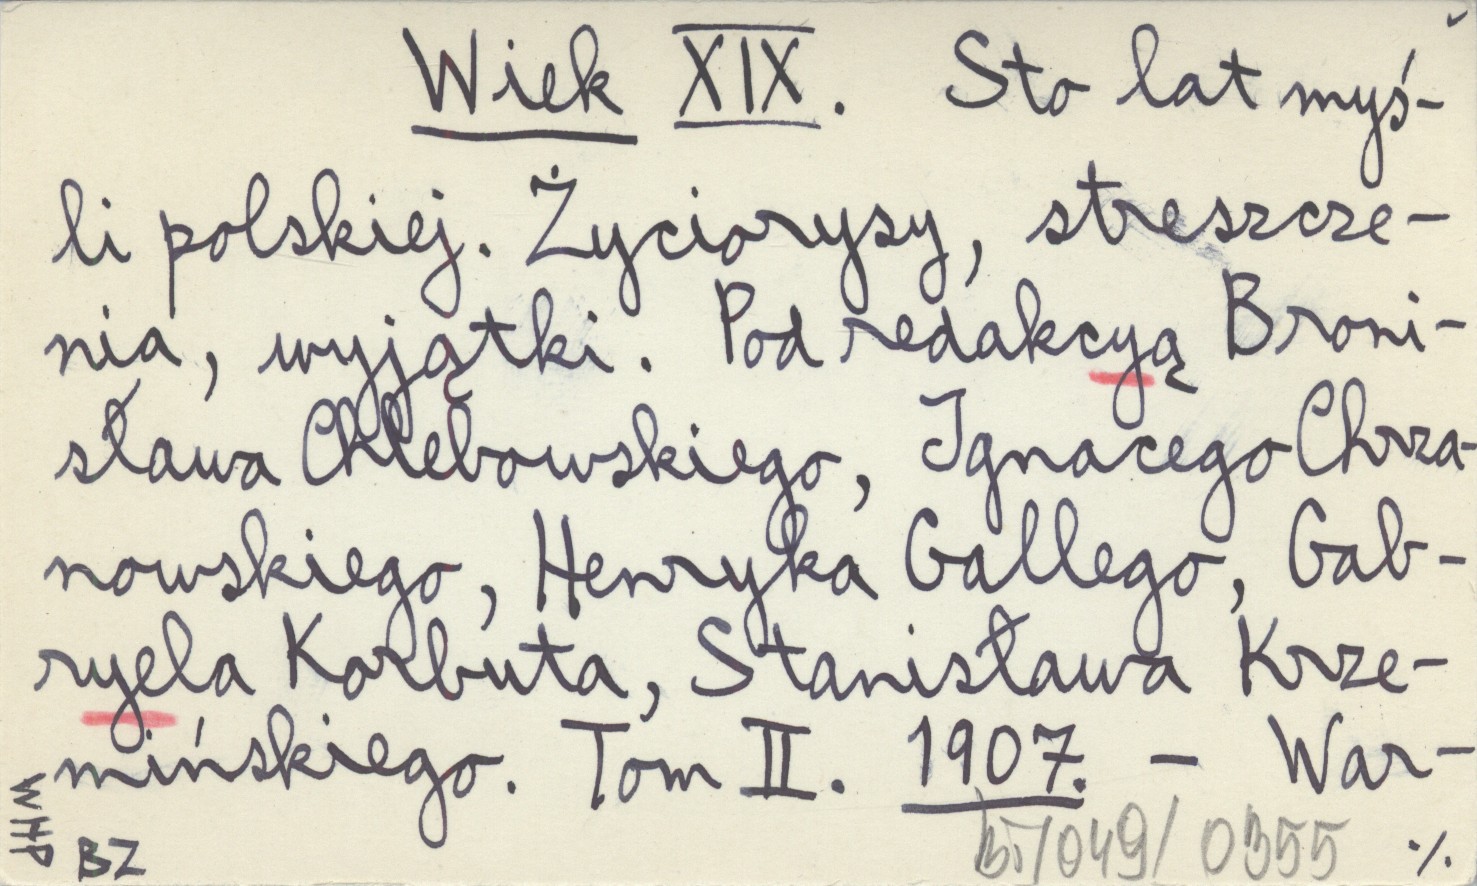 Wiek XIX. Sto lat myś-
li polskiej. Życiorysy, streszcze-
nia, wyjątki. Pod redakcyą Broni-
sława Chlebowskiego, Ignacego Chrza-
nowskiego, Henryka Gallego, Gab-
ryela Korbuta, Stanisława Krze-
mińskiego. Tom II. 1907. - War-
WHP
BZ
/049/ 0355
./.